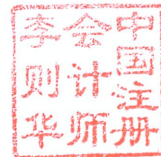 中国注册
会计师
李则华